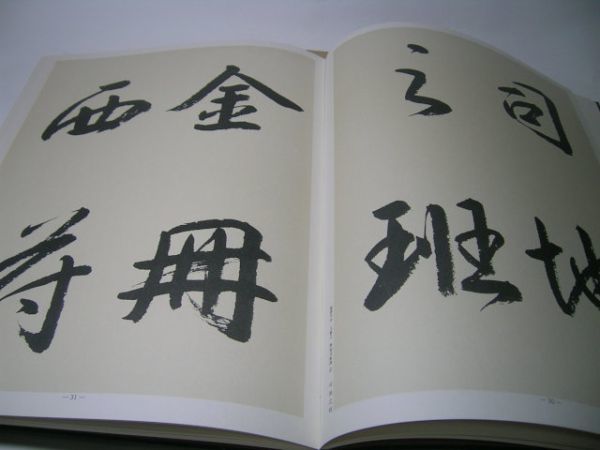 司地
之班
金冊
西
— 30 —
— 31 —